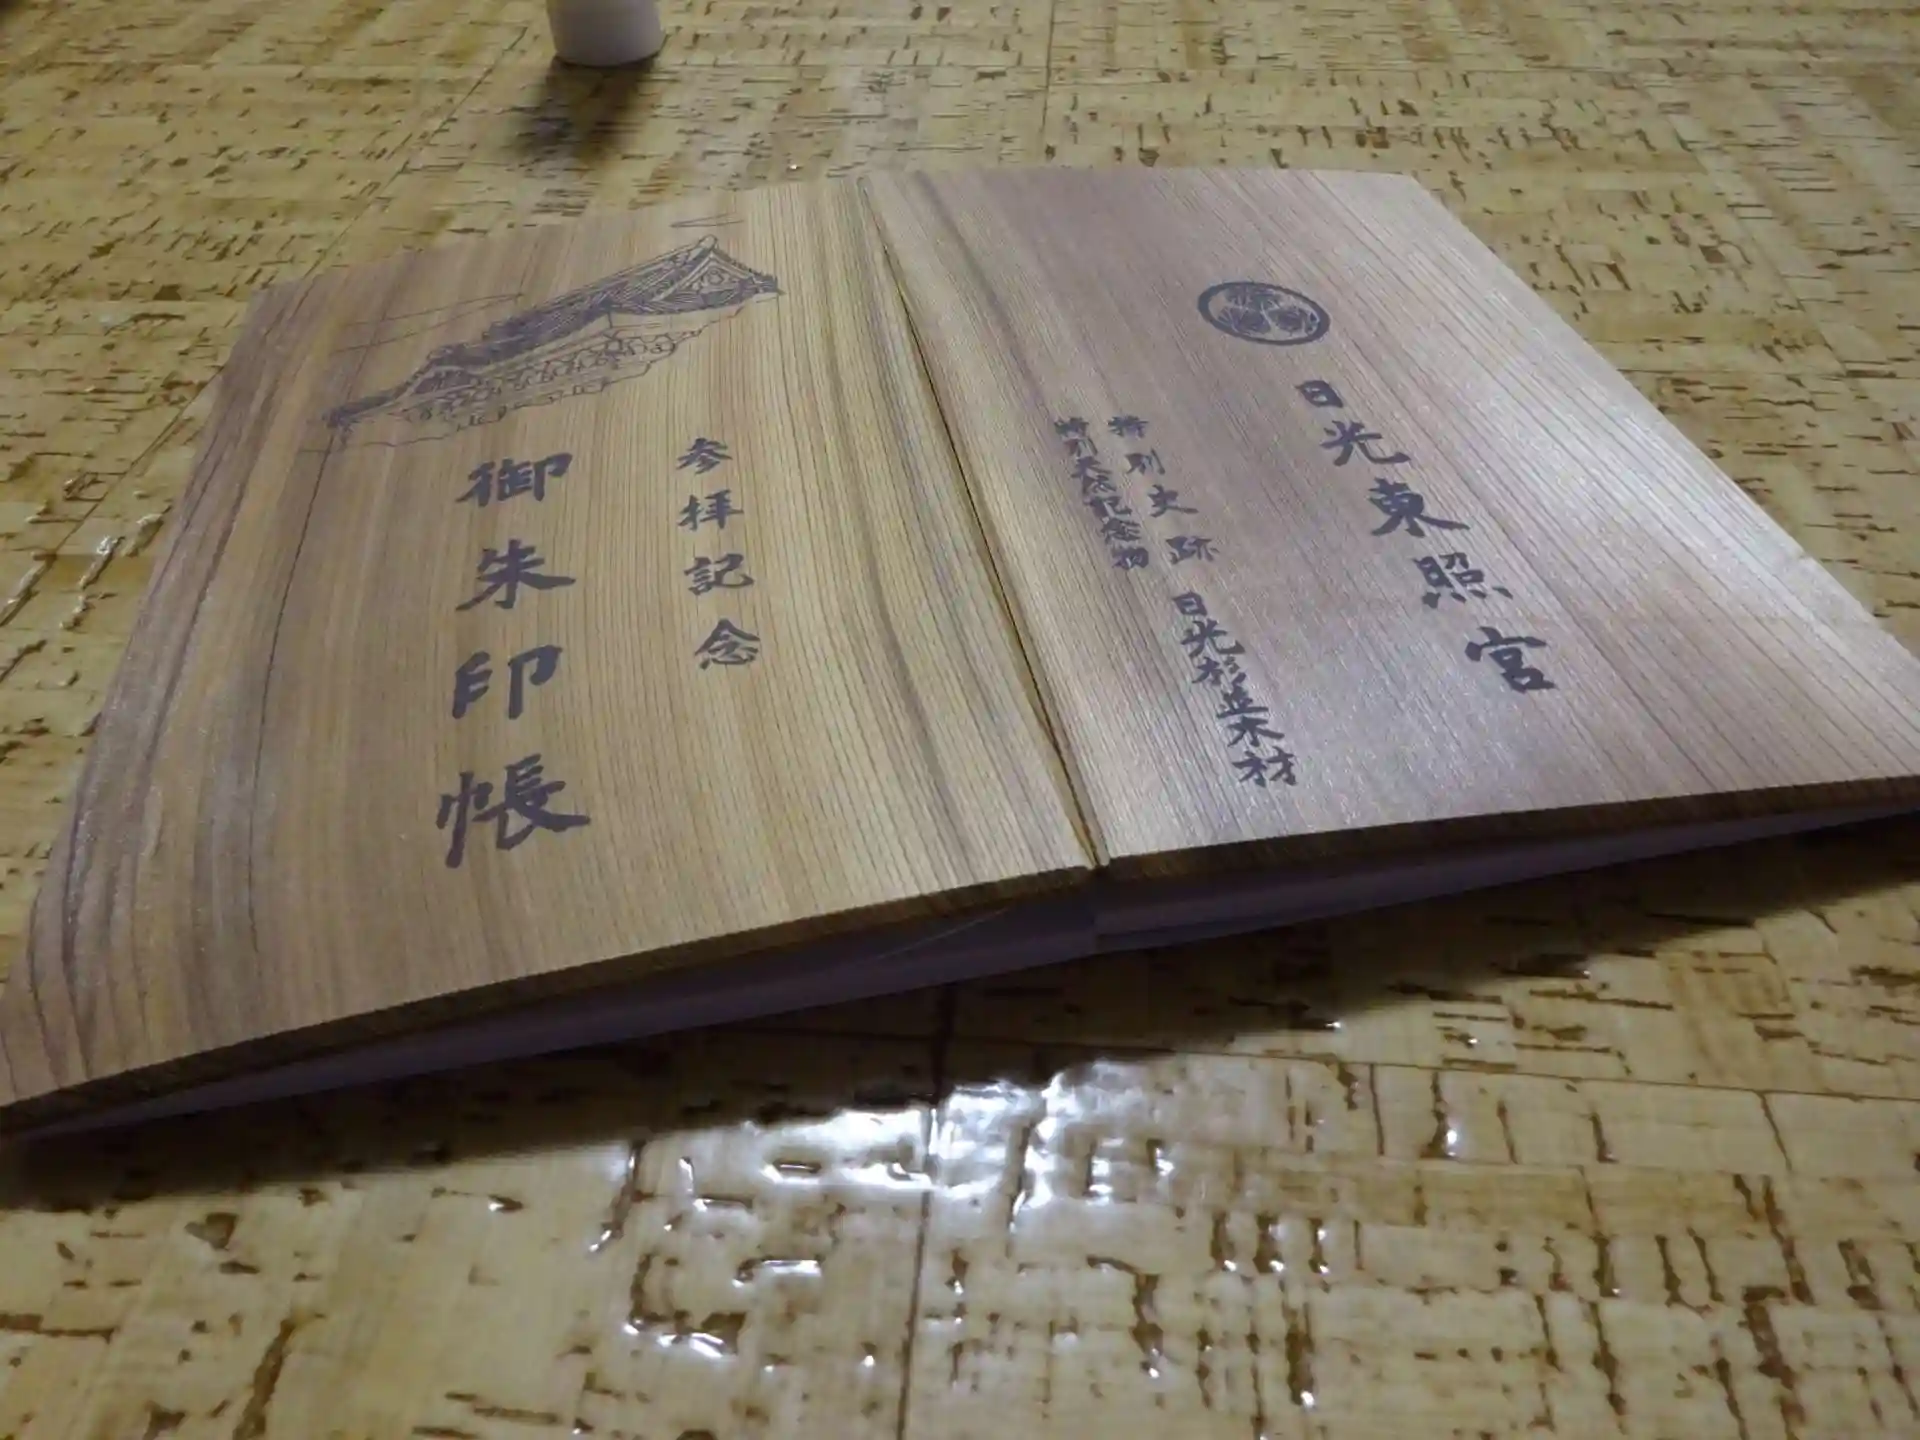 参拝記念
御朱印帳
日光東照宮
特別史跡
特別天然記念物
日光杉並木材